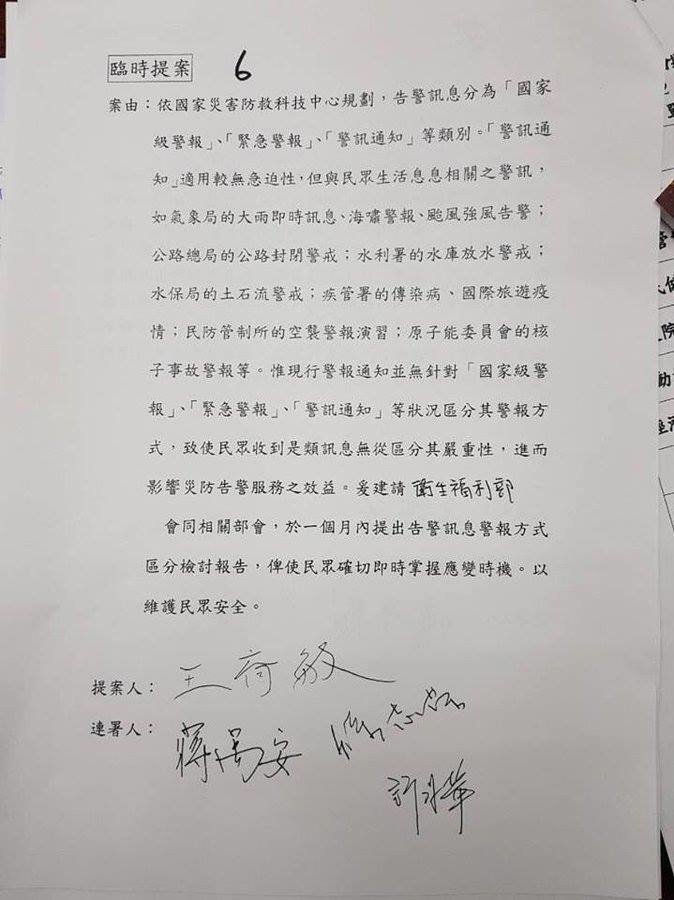 臨時提案 6
案由：依國家災害防救科技中心規劃，告警訊息分為「國家
級警報」、「緊急警報」、「警訊通知」等類別。「警訊通
知」適用較無急迫性，但與民眾生活息息相關之警訊，
如氣象局的大雨即時訊息、海嘯警報、颱風強風告警；
公路總局的公路封閉警戒；水利署的水庫放水警戒；
水保局的土石流警戒；疾管署的傳染病、國際旅遊疫
情；民防管制所的空襲警報演習；原子能委員會的核
子事故警報等。惟現行警報通知並無針對「國家級警
報」、「緊急警報」、「警訊通知」等狀況區分其警報方
式，致使民眾收到是類訊息無從區分其嚴重性，進而
影響災防告警服務之效益。爰建請 衛生福利部
會同相關部會，於一個月內提出告警訊息警報方式
區分檢討報告，俾使民眾確切即時掌握應變時機。以
維護民眾安全。
提案人：王育敏
連署人：蔣萬安